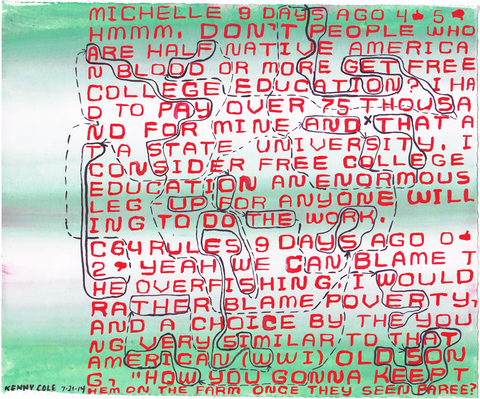 MICHELLE 9 DAYS AGO 4👍 5👎
HMMM, DON'T PEOPLE WHO
ARE HALF NATIVE AMERICA
N BLOOD OR MORE GET FREE
COLLEGE EDUCATION? I HA
D TO PAY OVER 75 THOUSA
ND FOR MINE AND THAT A
T A STATE UNIVERSITY. I
CONSIDER FREE COLLEGE
EDUCATION AN ENORMOUS
LEG-UP FOR ANYONE WILL
ING TO DO THE WORK.
C64RULES 9 DAYS AGO 0👍
2👎 YEAH WE CAN BLAME T
HE OVERFISHING. I WOULD
RATHER BLAME POVERTY,
AND A CHOICE BY THE YOU
NG VERY SIMILAR TO THAT
AMERICAN (WWI) OLD SON
G, "HOW YOU GONNA KEEP T
HEM ON THE FARM ONCE THEY SEEN PAREE?
KENNY COLE 7-21-14